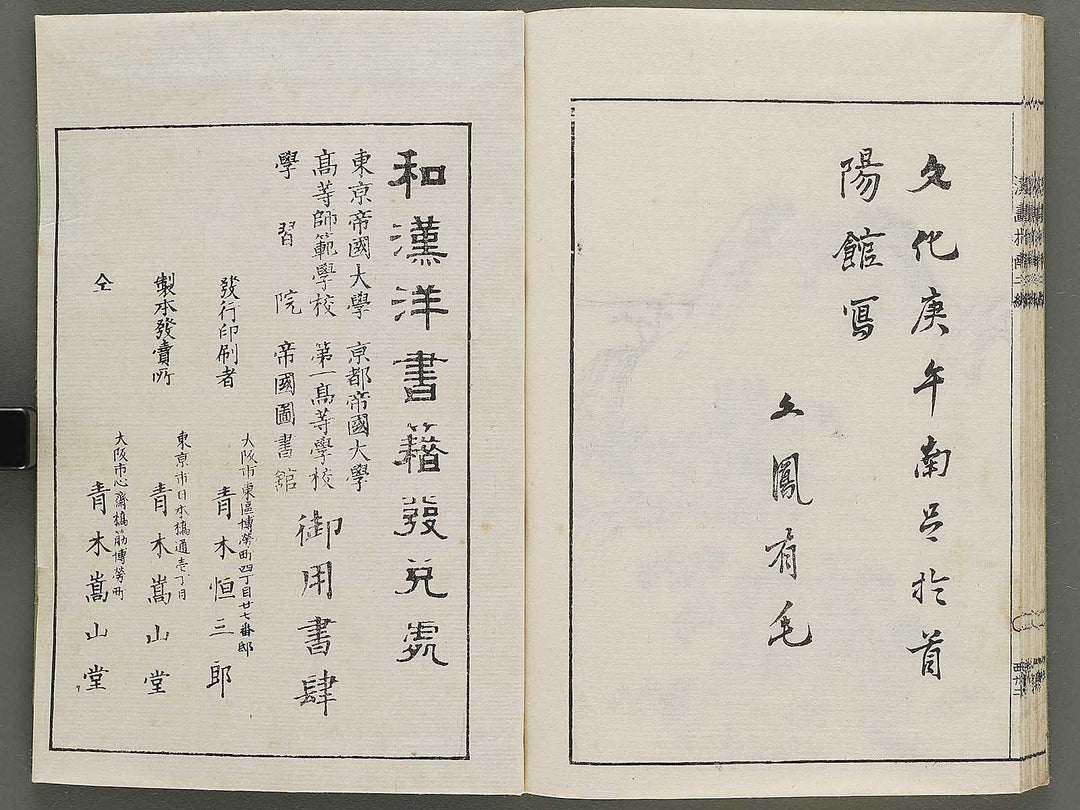 文化庚午南呂於首
陽館寫
上鳳有毛
和漢洋書籍發兌處
東京帝國大學 京都帝國大學
高等師範學校 第一高等學校
學習院 帝國圖書館
御用書肆
發行印刷者
大阪市東區博勞町四丁目廿七番邸
青木恒三郎
製本發賣所
東京市日本橋通壱丁目
青木嵩山堂
仝
大阪市心齋橋筋博勞町
青木嵩山堂